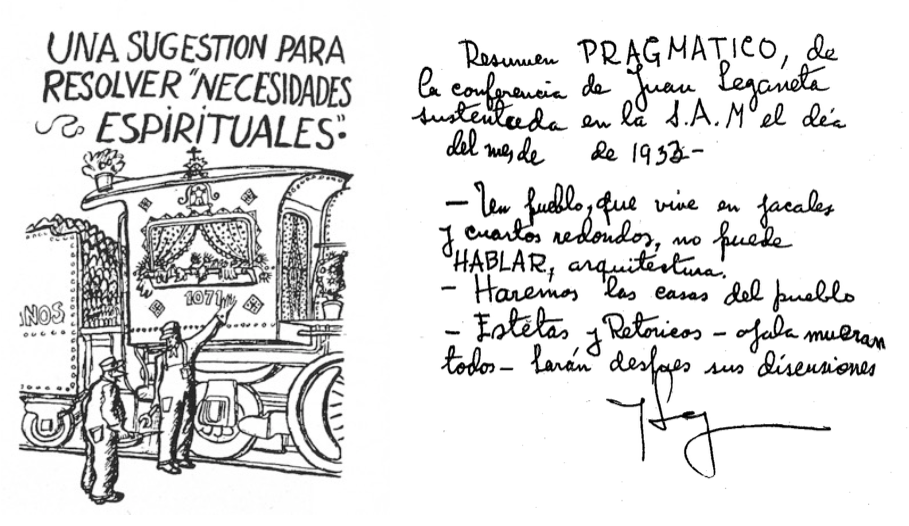 UNA SUGESTION PARA
RESOLVER "NECESIDADES
ESPIRITUALES".
ANOS
1071
Resumen PRAGMATICO, de
la conferencia de Juan Legarreta
sustentada en la S.A.M el día
del mes de de 1933-
- Un pueblo, que vive en jacales
y cuartos redondos, no puede
HABLAR, arquitectura.
- Haremos las casas del pueblo
- Estétas y Retoricos - ojala mueran
todos - harán despues sus discusiones